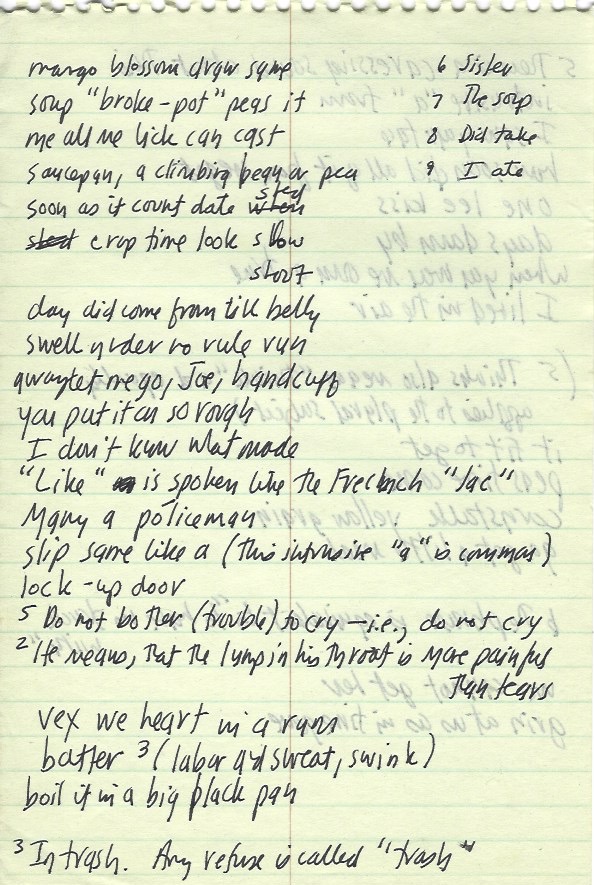 mango blossom draw same
soup "broke-pot" peas it
me all me lick can cast
saucepan, a climbing bean or pea
soon as it count date when sted
start crop time look slow
stout
6 Sister
7 The soup
8 Did take
9 I ate
day did come from till belly
swell order no rule run
let me go, Joe, handcuff
you put it on so rough
I don't know what made
"Like" is spoken like the French "lac"
Many a policeman
slip same like a (this intrusive "a" is common)
lock-up door
5 Do not bother (trouble) to cry — i.e., do not cry
2 He means, that the lump in his throat is more painful
than tears
vex we heart in a
batter 3 (labor and sweat, swink)
boil it in a big black pan
3 In trash. Any refuse is called "trash"